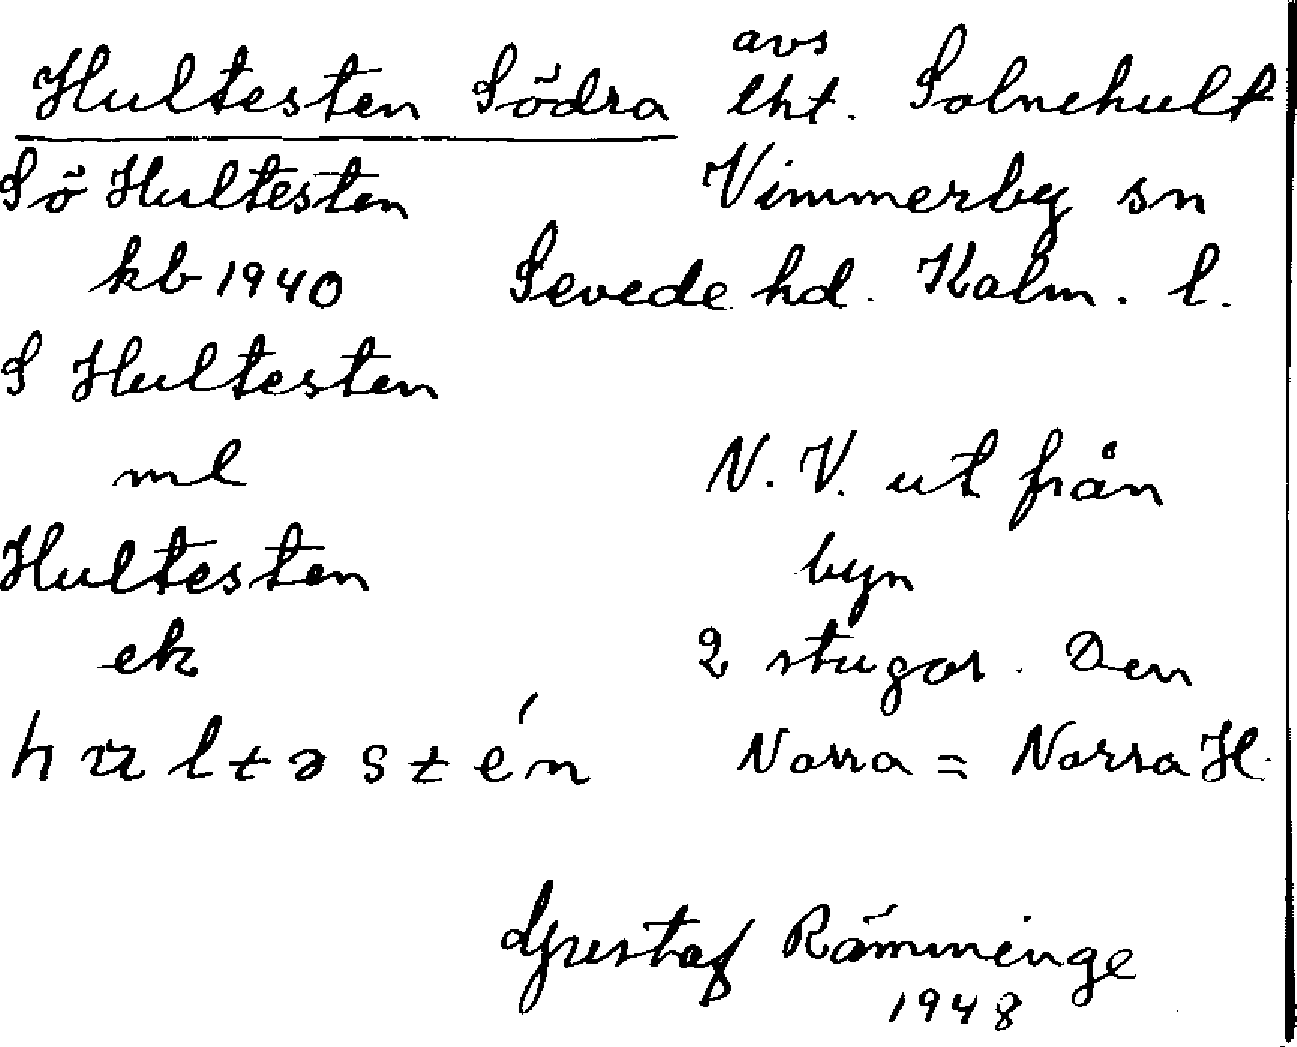 avs
Hultesten Södra lht. Solnehult
Sö Hultesten Vimmerby sn
kb 1940 Sevede hd. Kalm. l.
S Hultesten
ml N. V. ut från
Hultesten byn
ek 2 stugor. Den
hultəstén Norra = Norra H.
Gustaf Rämminge
1948